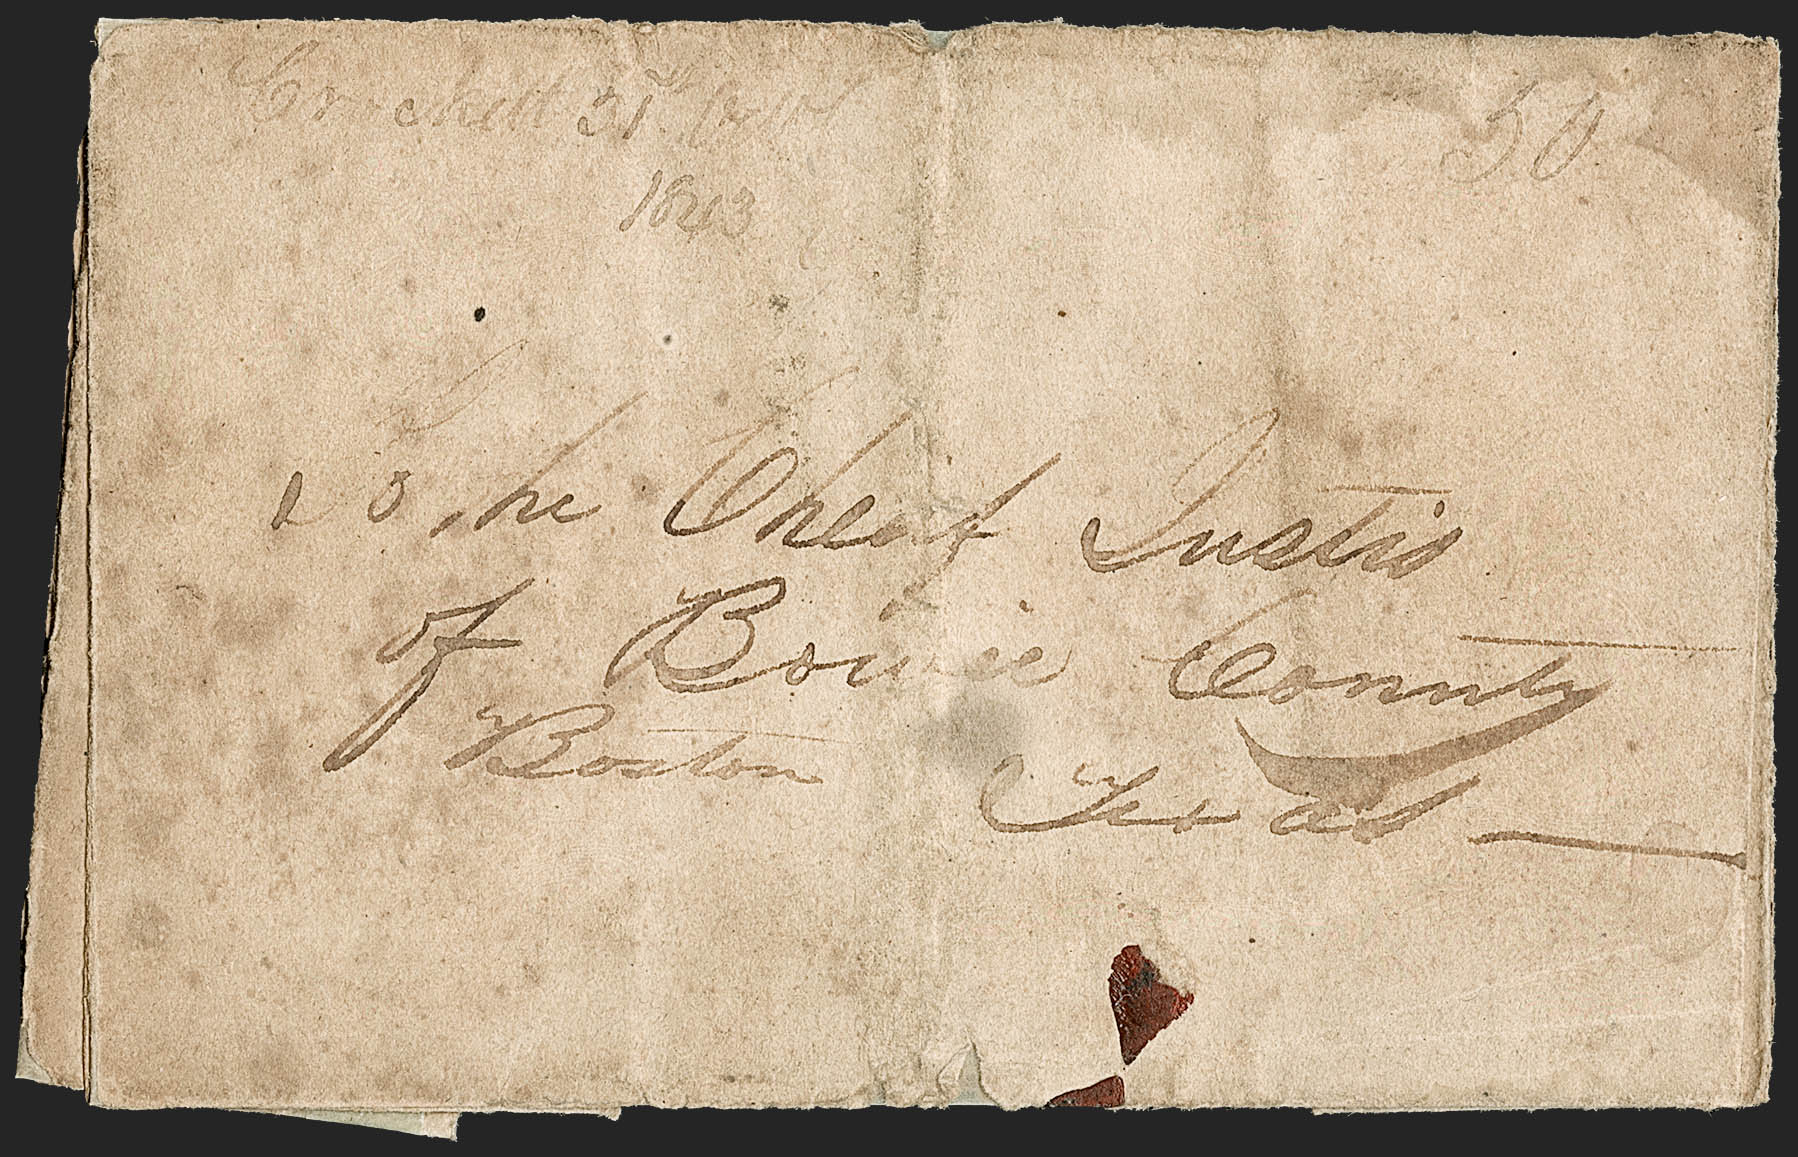 Crockett 31st
50
1843
To the Cheaf Justis
of Bowiee County
Boston Texas